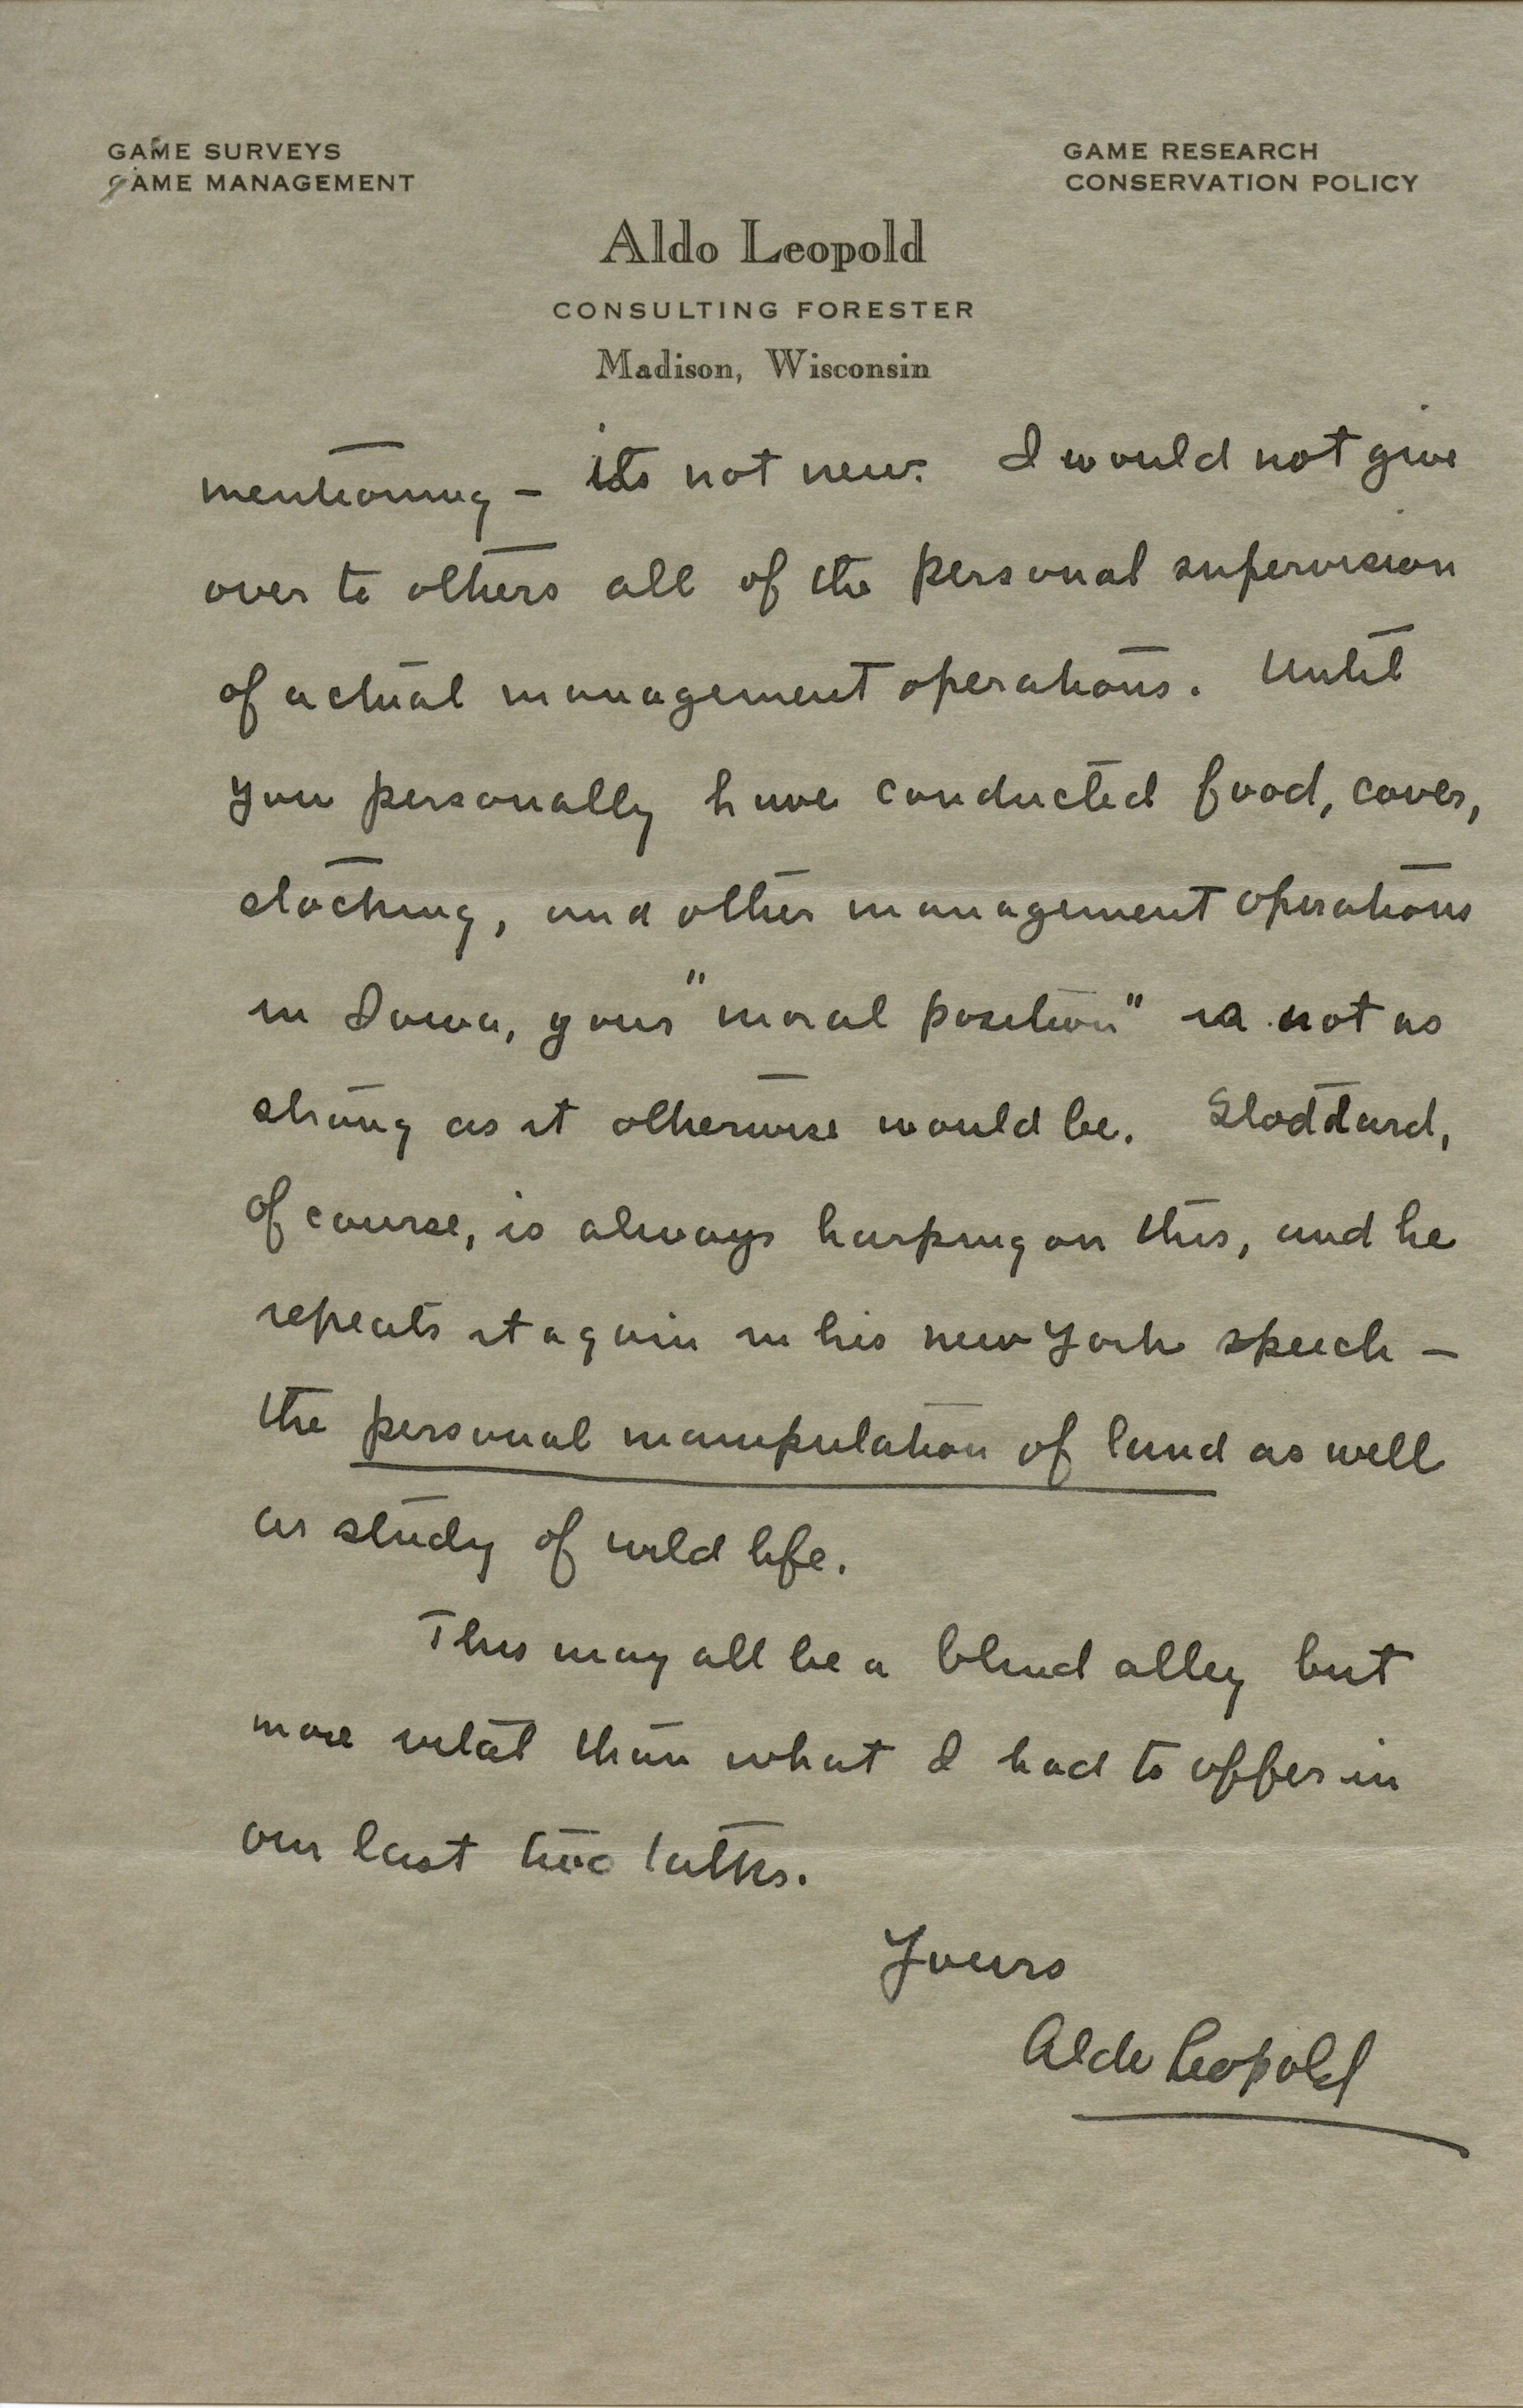 GAME SURVEYS
GAME MANAGEMENT
GAME RESEARCH
CONSERVATION POLICY
Aldo Leopold
CONSULTING FORESTER
Madison, Wisconsin
mentioning - its not new. I would not give
over to others all of the personal supervision
of actual management operations. Until
you personally have conducted food, cover,
stocking, and other management operations
in Iowa, your "moral position" is not as
strong as it otherwise would be. Stoddard,
of course, is always harping on this, and he
repeats it again in his new York speech -
the personal manipulation of land as well
as study of wild life.
This may all be a blind alley but
more vital than what I had to offer in
our last two talks.
Yours
Aldo Leopold